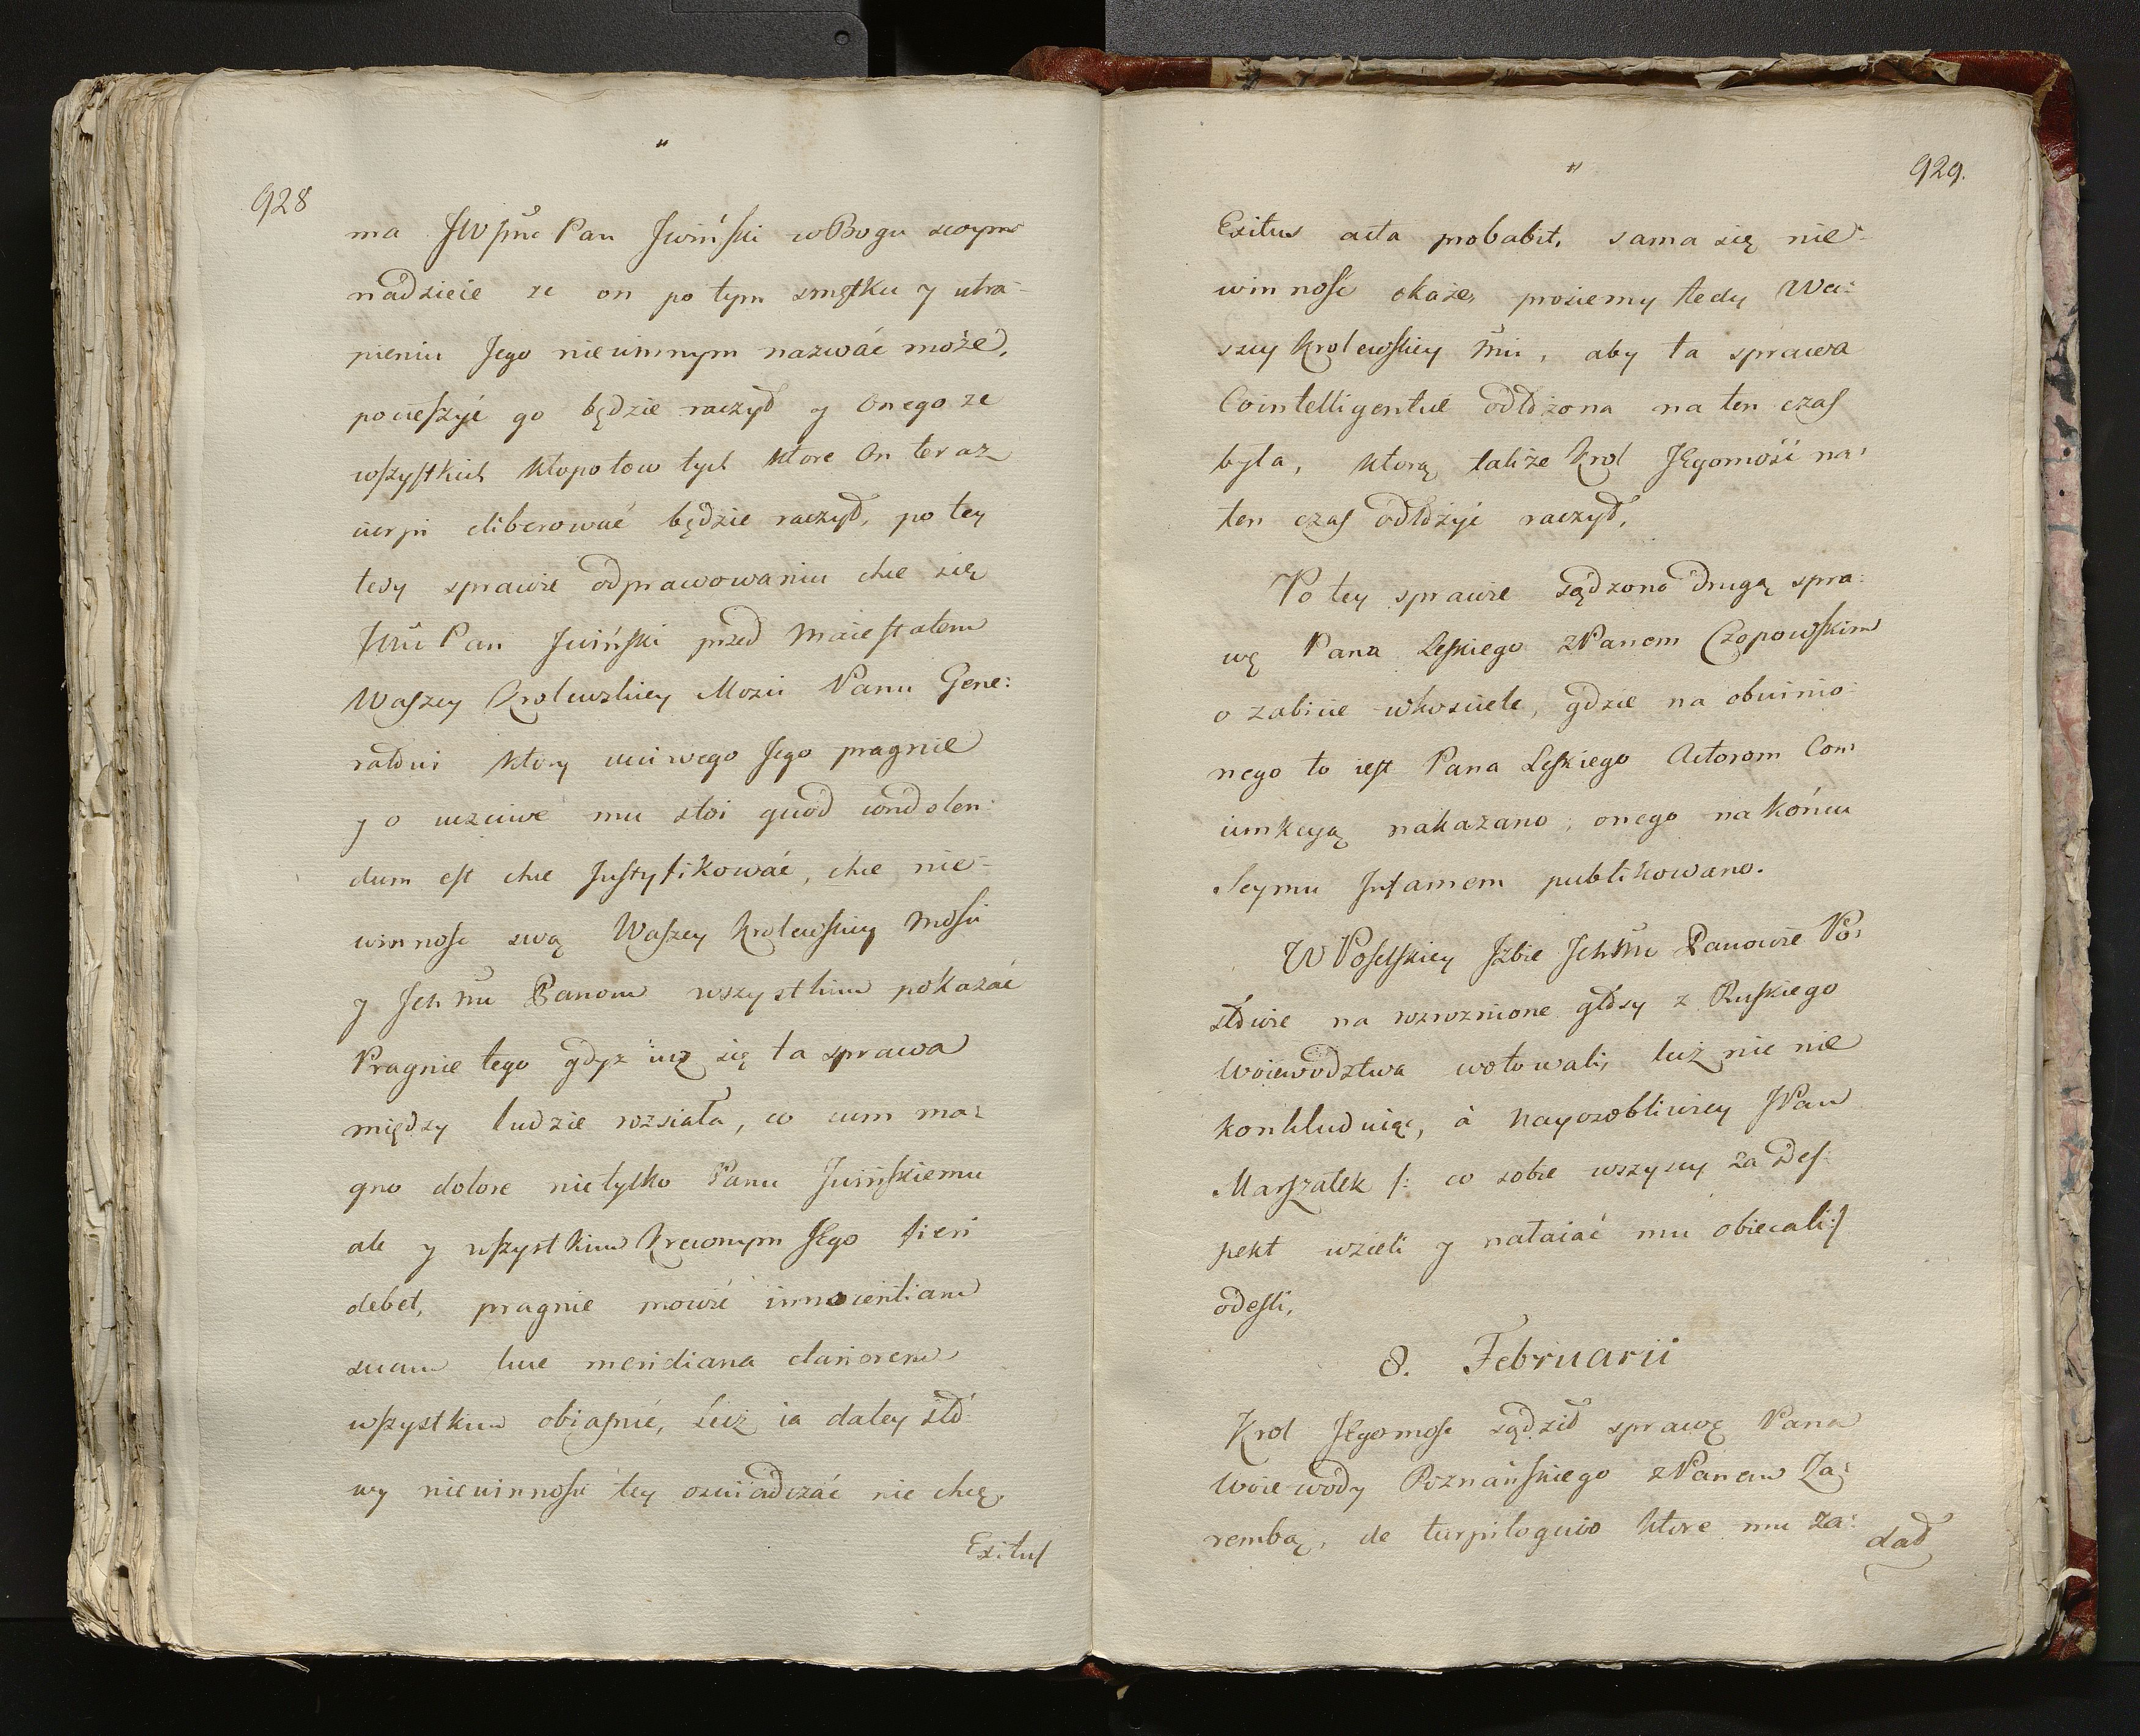 928
ma JWJmć Pan Jwiński w Bogu swym
nadzieie ze on po tym smętku y utra-
pieniu Jego niewinnym nazwać może,
pocieszyć go będzie raczył y Onego ze
wszystkich kłopotow tych ktore On teraz
cierpi eliberować będzie raczył, po tey
tedy sprawie odprawowaniu chce się
Jmć Pan Jwiński przed Maiestatem
Waszey Krolewskiey Mości Panu Gene:
rałowi ktory uczciwego Jego pragnie
y o uczciwe mu stoi quod condolen:
dum est chce Justyfikować, chce nie-
winnosc swą Waszey Krolewskiey Mosci
y Jch Mć Panom wszystkim pokazać
Pragnie tego gdyz iuz się ta sprawa
między ludzie rozsiała, co cum ma:
gno dolore nietylko Panu Jwińskiemu
ale y wszystkim Krewnym JEgo fieri
debet, pragnie mowie innocentiam
suam luce meridiana clariorem
wszystkim obiasnić, Lecz ia daley sło-
wy niewinnosci tey oswiadczać nie chcę.
Exitus
929.
Exitus acta probabit, sama się nie-
winnosc okaże, prosiemy tedy Wa:
szey Krolewskiey Mći, aby ta sprawa
Cointelligentiae odłożona na ten czas
była, ktorą takze Krol JEgomość na:
ten czas odłożyć raczył,
Po tey sprawie sądzono drugą spra:
wę Pana Leskiego z Panem Czapowskim
o zabicie w kosciele, gdzie na obwinio:
nego to iest Pana Leskiego Actorom Con
iunkcyą nakazano, onego na końcu
Seymu Jnfamem publikowano.
W Poselskiey Jzbie Jch Mć Panowie Po:
słowie na rozroznione głosy z Ruskiego
Woiewodztwa wotowali, lecz nic nie
konkluduiąc, à nayosobliwiey JPan
Marszałek /: co sobie wszyscy za Des:
pekt wzieli y nataiać mu obiecali :/
odesli,
8. Februarii
Krol JEgomosc sądził sprawę Pana
Woiewody Poznańskiego z Panem Za:
rembą, de turpiloquio ktore mu za:
dał